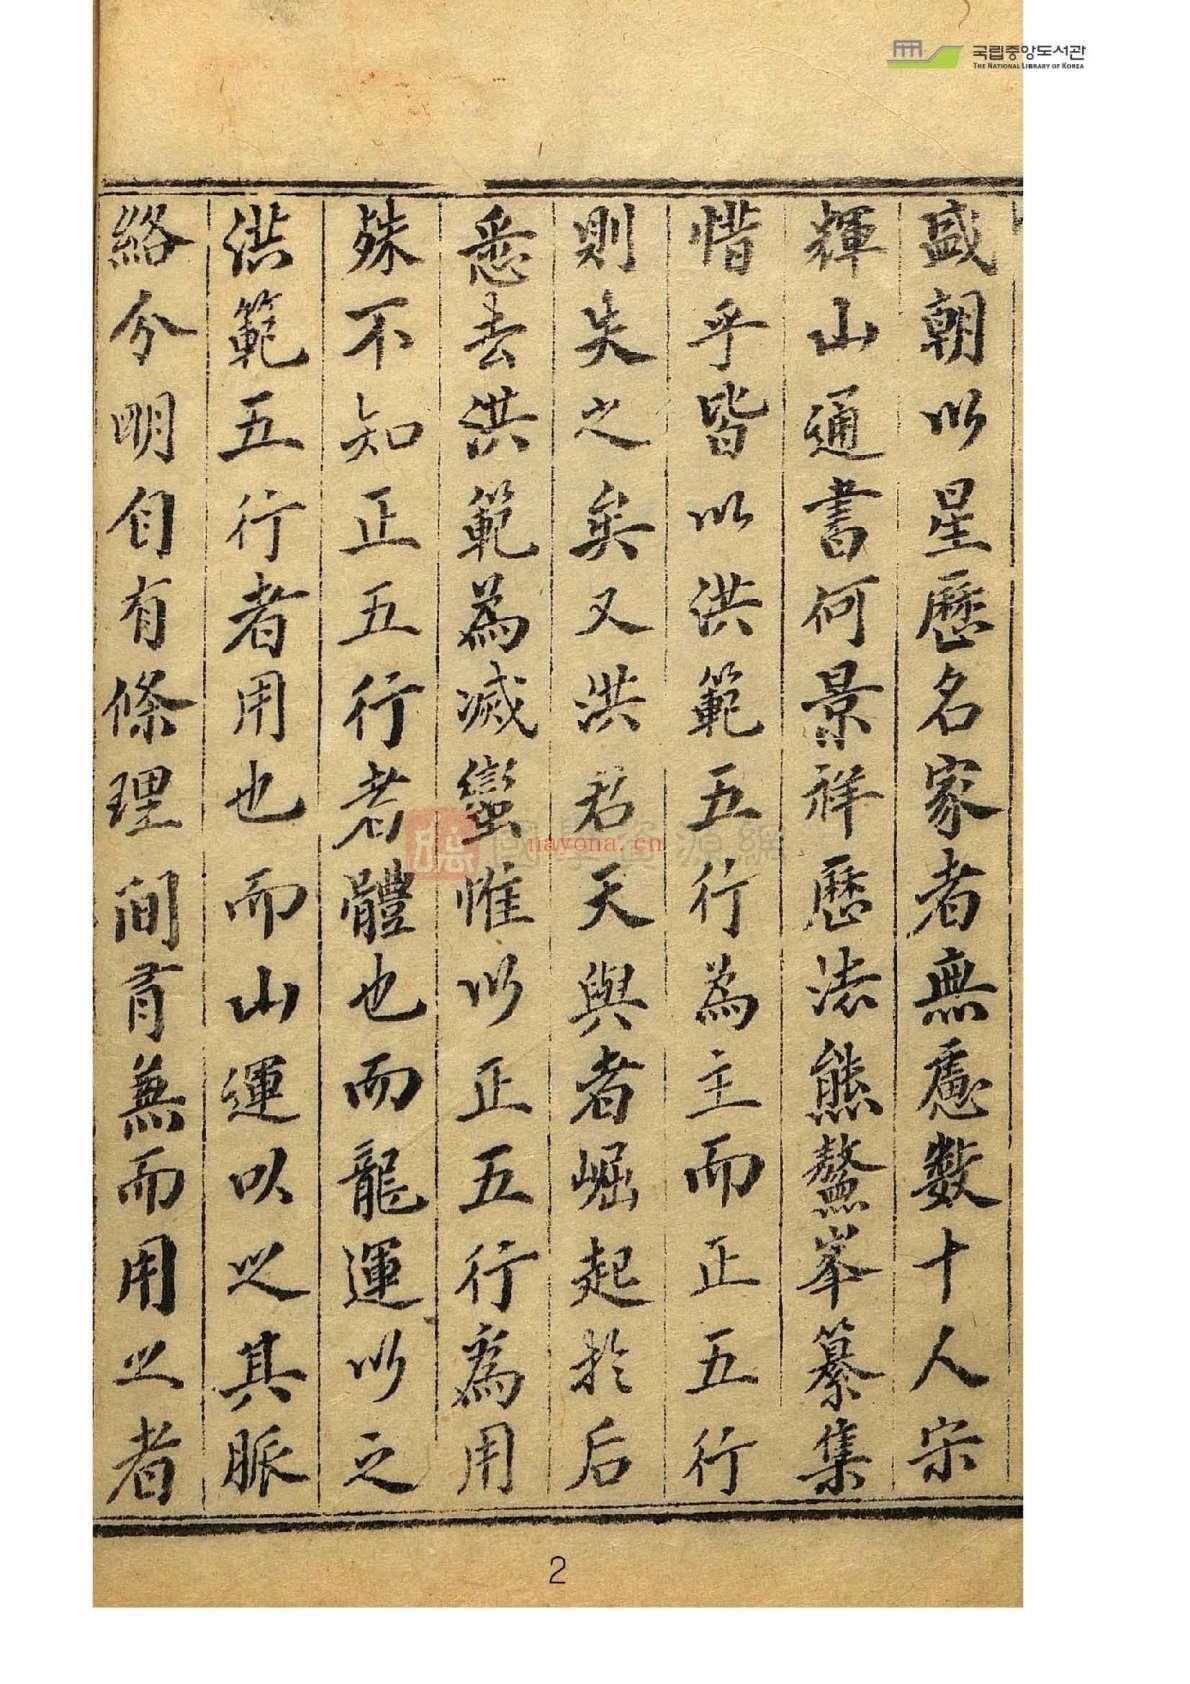 국립중앙도서관
THE NATIONAL LIBRARY OF KOREA
盛朝以星歷名家者無慮數十人宋
輝山通書何景祥歷法熊鰲峯纂集
惜乎皆以洪範五行為主而正五行
則失之矣又洪君天與者崛起於后
悉去洪範為滅蠻惟以正五行為用
殊不知正五行者體也而龍運以之
洪範五行者用也而山運以之其脈
絡分明自有條理間有兼而用之者
國學資源網
nayona.cn
2